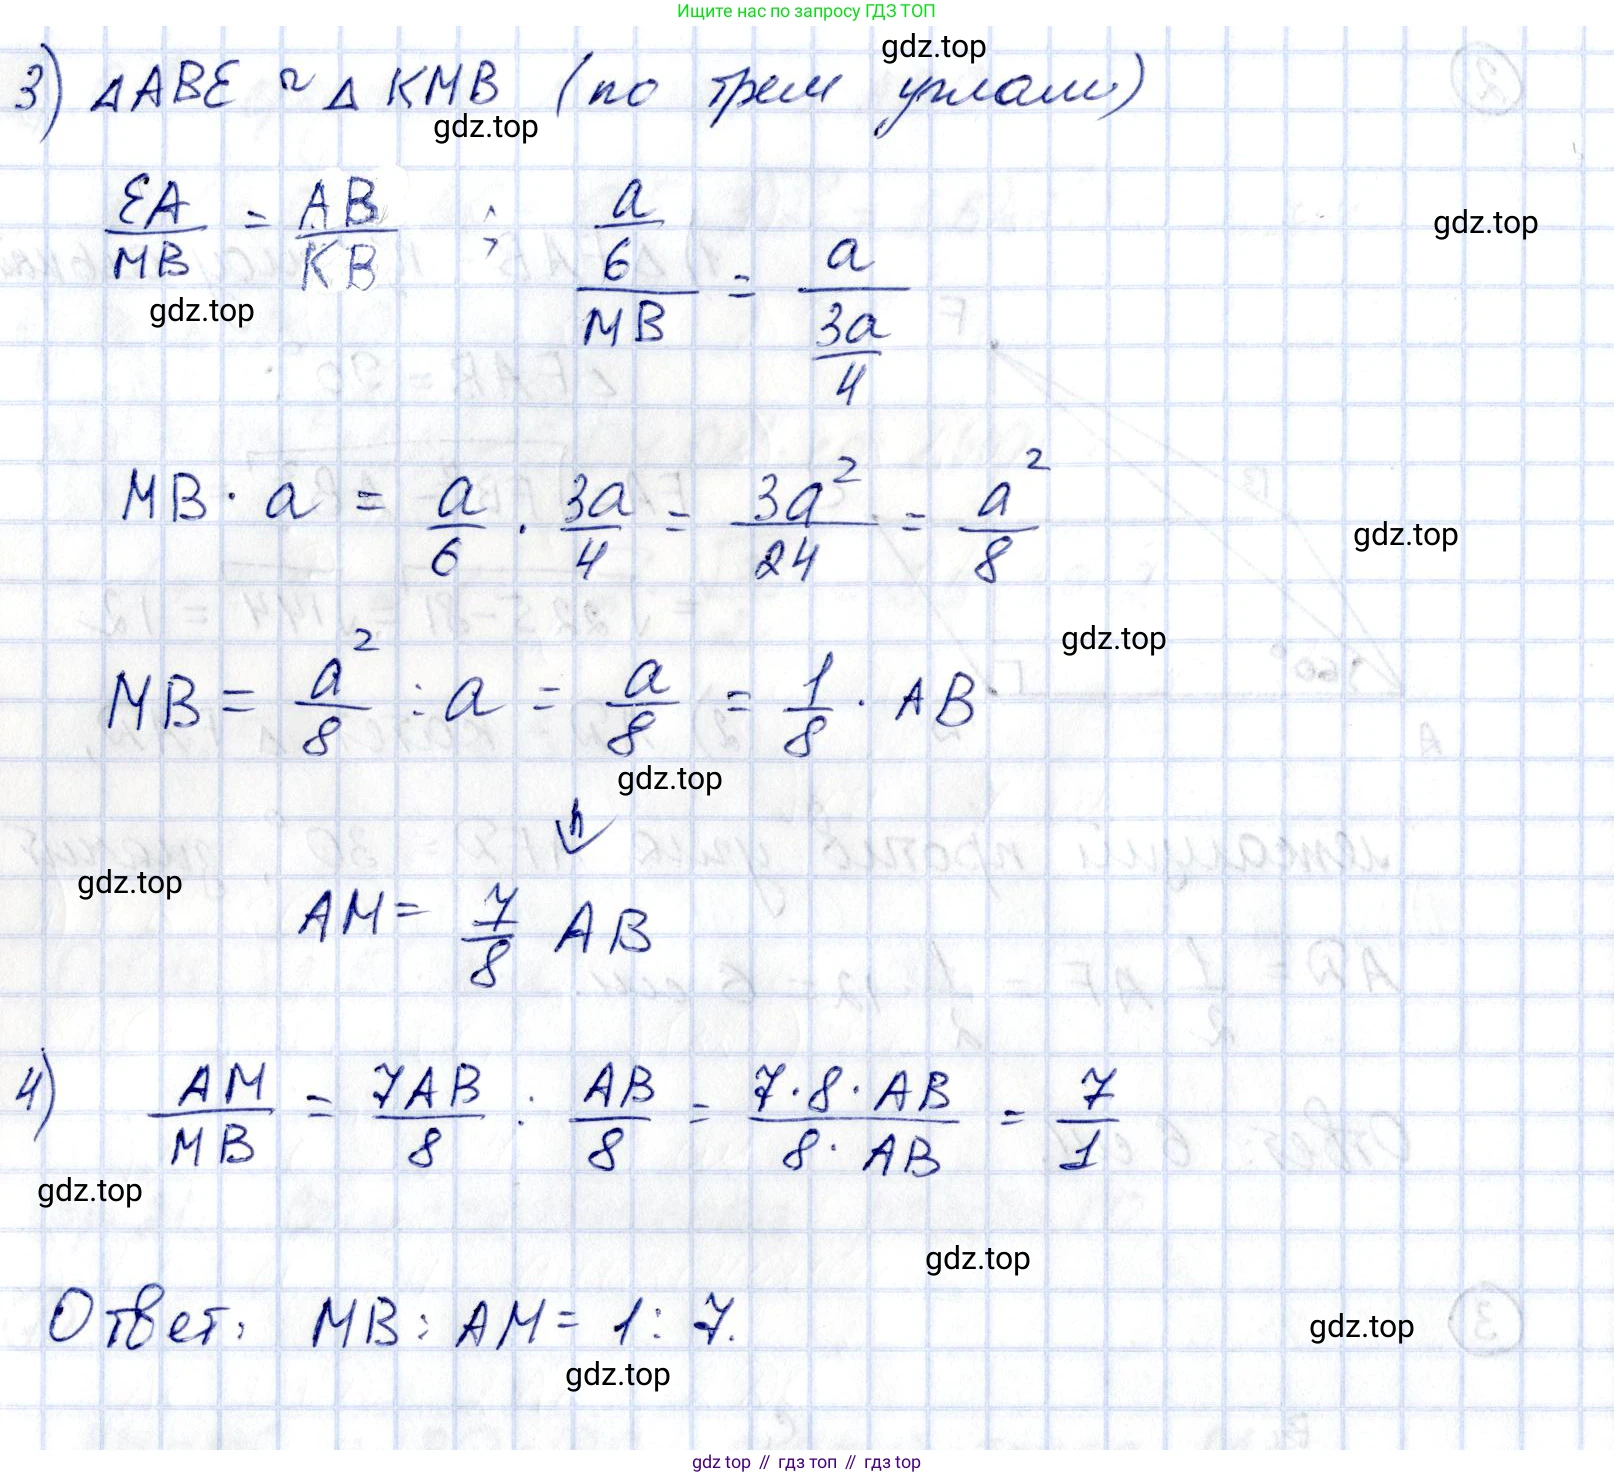 Ищите нас по запросу ГДЗ ТОП
gdz.top
3) △ABE ~ △KMB (по трем углам)
gdz.top
EA/MB = AB/KB ; (a/6)/MB = a/(3a/4)
gdz.top
gdz.top
MB · a = a/6 · 3a/4 = 3a²/24 = a²/8
gdz.top
gdz.top
MB = a²/8 : a = a/8 = 1/8 · AB
gdz.top
⇓
gdz.top
AM = 7/8 AB
4) AM/MB = 7AB/8 : AB/8 = 7·8·AB/8·AB = 7/1
gdz.top
gdz.top
Ответ: MB : AM = 1 : 7.
gdz.top
gdz.top
gdz.top // гдз топ // гдз top